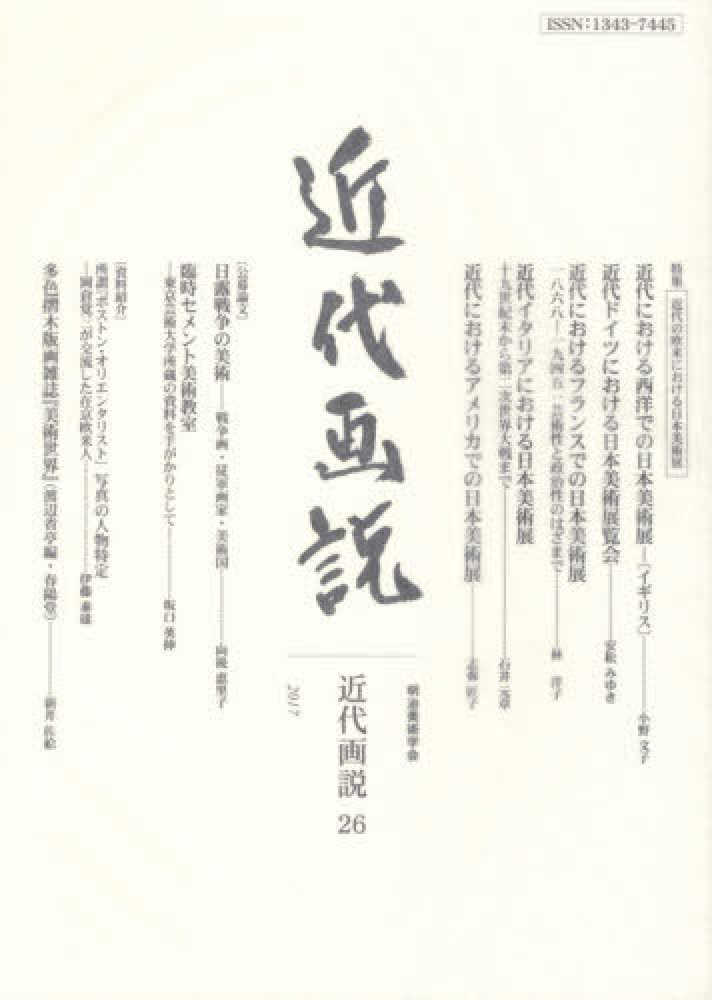 ISSN:1343-7445
特集 近代の欧米における日本美術展
近代における西洋での日本美術展―〔イギリス〕――小野 文子
近代ドイツにおける日本美術展覧会――安松 みゆき
近代におけるフランスでの日本美術展
一八六八―一九四五 芸術性と政治性のはざまで――林 洋子
近代イタリアにおける日本美術展
十九世紀末から第二次世界大戦まで――石井 元章
近代におけるアメリカでの日本美術展――志邨 匠子
近代画説
明治美術学会
近代画説 26
2017
〔公募論文〕
日露戦争の美術――戦争画・従軍画家・美術国――向後 恵里子
臨時セメント美術教室
―東京芸術大学所蔵の資料を手がかりとして――坂口 英伸
〔資料紹介〕
所謂「ボストン・オリエンタリスト」写真の人物特定
―岡倉覚三が交流した在京欧米人――伊藤
多色摺木版画雑誌『美術世界』(渡辺省亭編・春陽堂)――新井